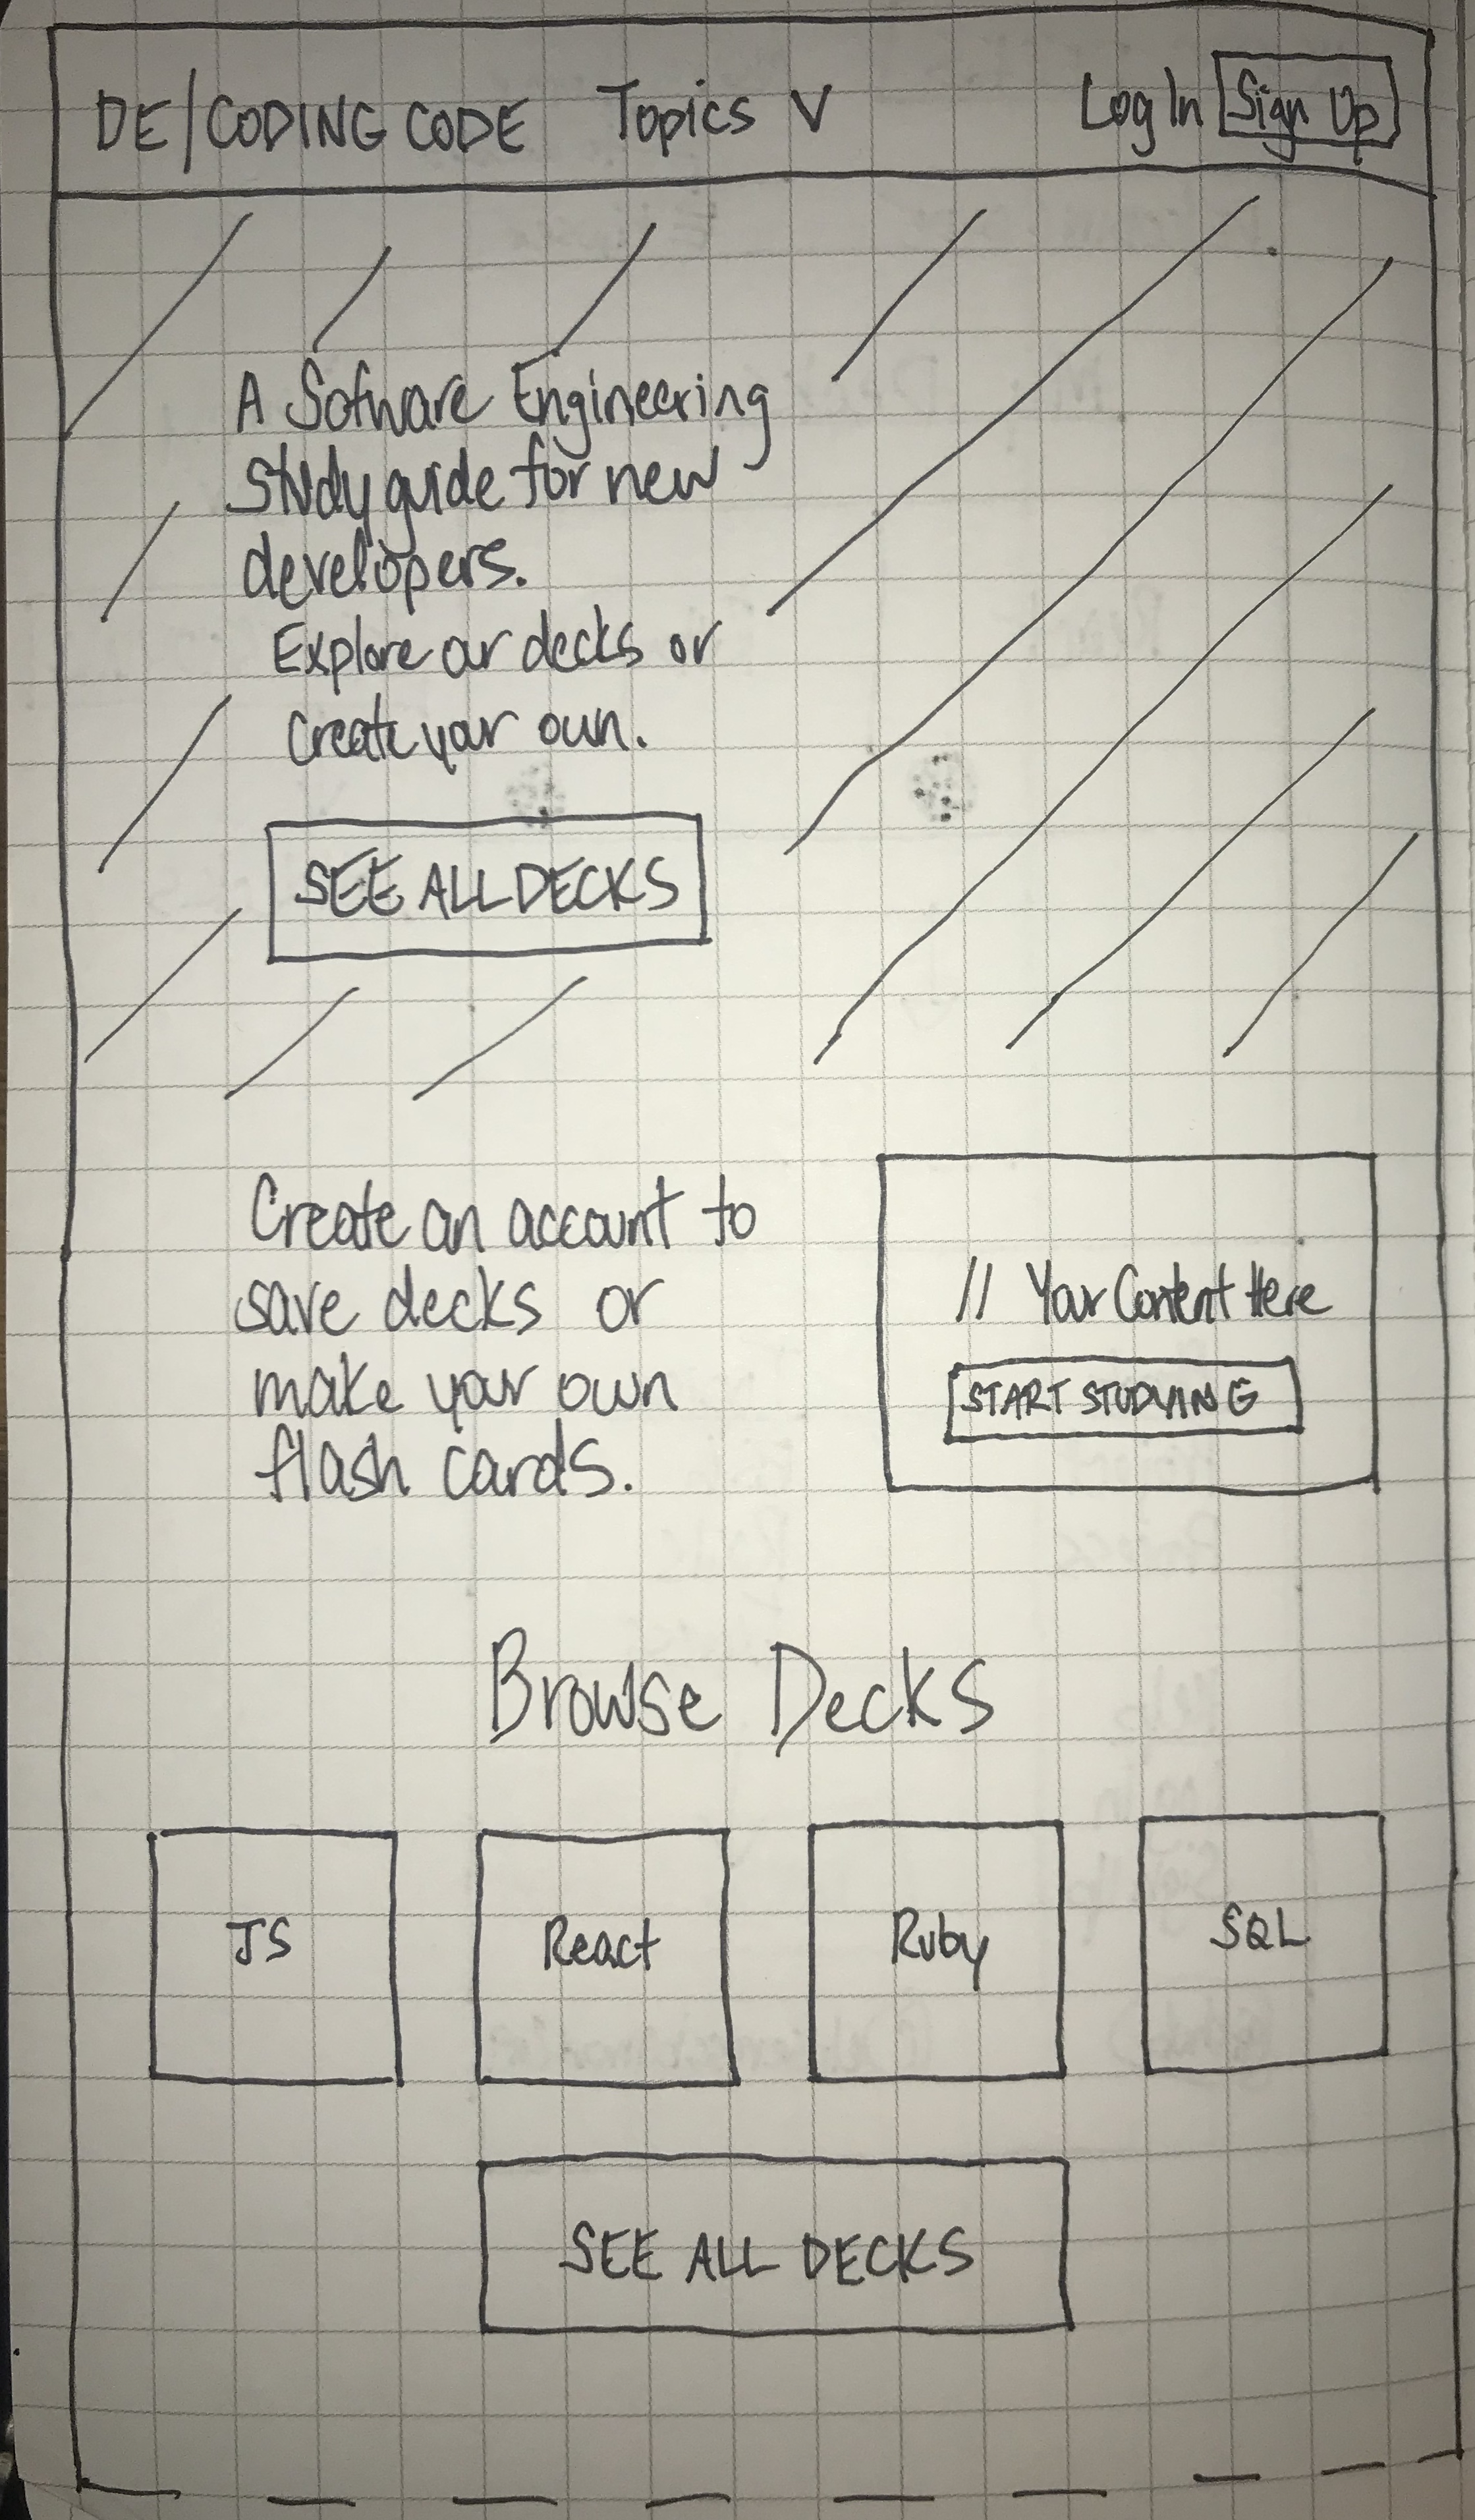 DE/CODING CODE Topics V Log In Sign Up
A Sofware Engineering
study guide for new
developers.
Explore our decks or
create your own.
SEE ALL DECKS
Create an account to
save decks or
make your own
flash cards.
// Your Content Here
START STUDYING
Browse Decks
JS React Ruby SQL
SEE ALL DECKS